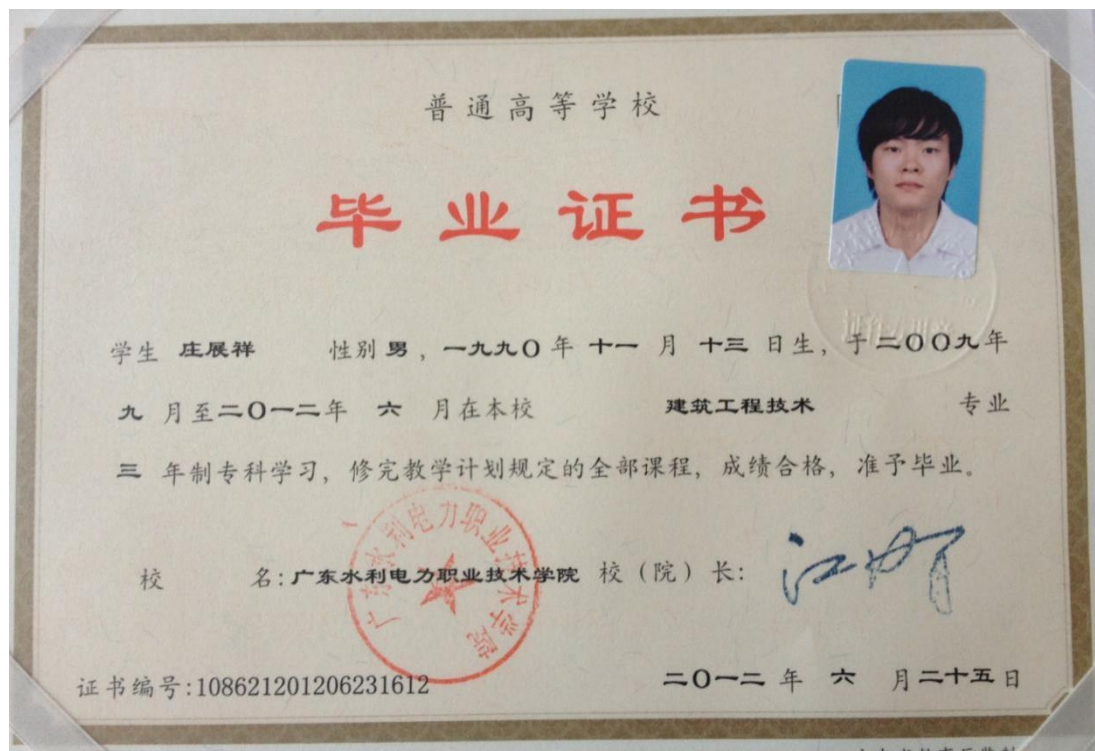 普通高等学校
毕业证书
学生 庄展祥 性别 男，一九九〇年 十一 月 十三 日生，于二〇〇九年
九 月至二〇一二年 六 月在本校 建筑工程技术 专业
三 年制专科学习，修完教学计划规定的全部课程，成绩合格，准予毕业。
广东水利电力职业技术学院
校 名：广东水利电力职业技术学院 校（院）长：
证书编号:108621201206231612 二〇一二 年 六 月二十五日